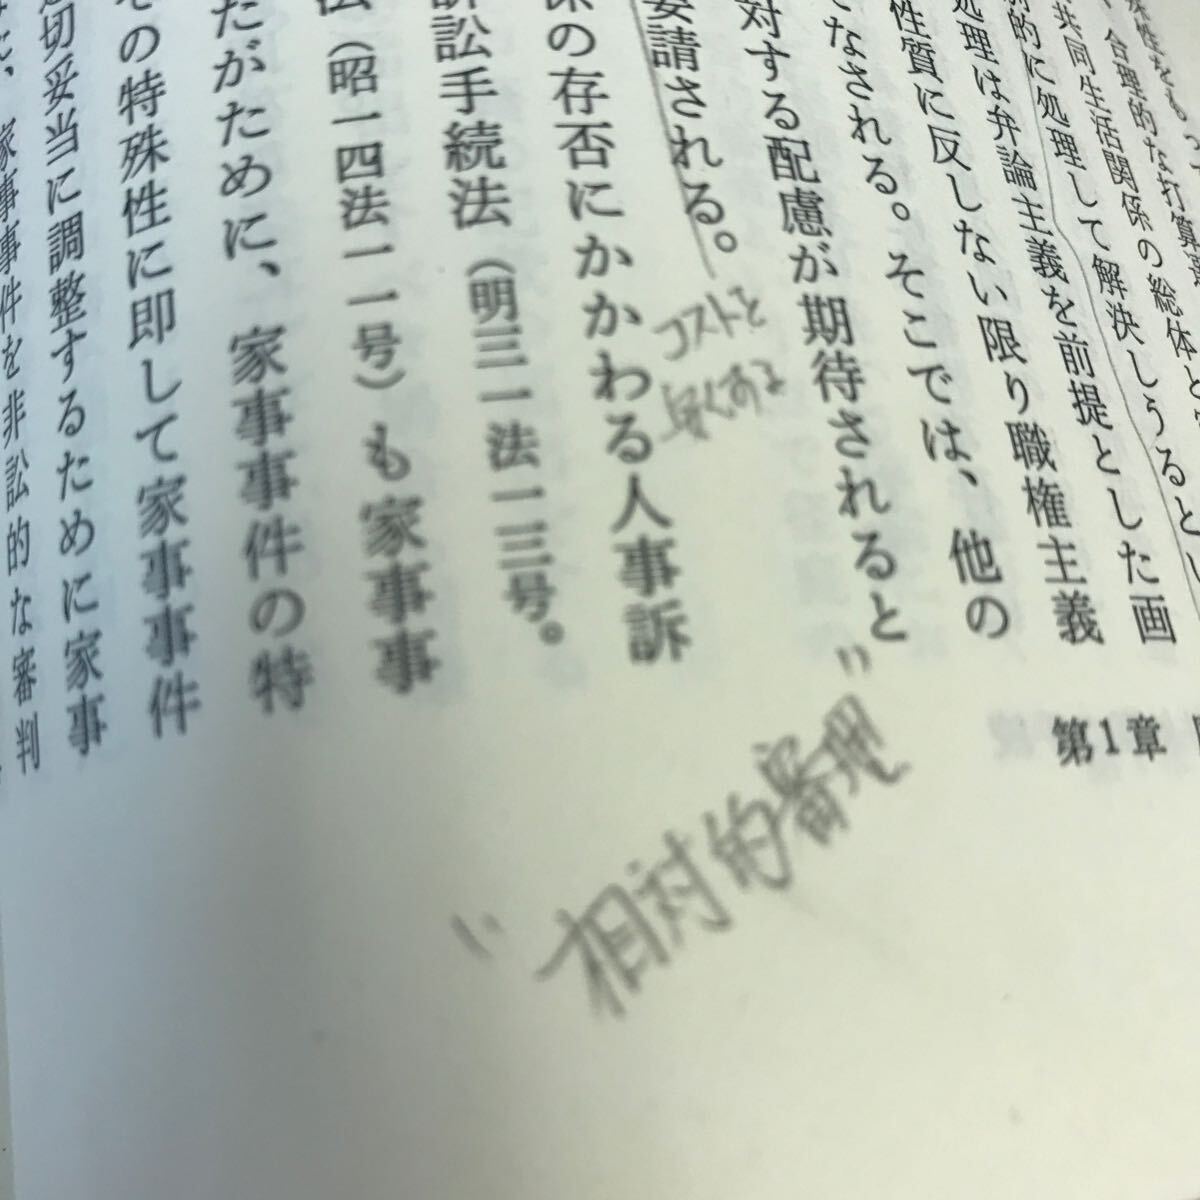 殊性をもって
、合理的な打算
共同生活関係の総体と
的に処理して解決しうるとい
処理は弁論主義を前提とした画
性質に反しない限り職権主義
てなされる。そこでは、他の
対する配慮が期待されると
要請される。
係の存否にかかわる人事訴
訴訟手続法（明三一法一三号。
法（昭一四法一一号）も家事事
たがために、家事事件の特
その特殊性に即して家事事件
適切妥当に調整するために家事
に、家事事件を非訟的な審判
コストと
良くする
"相対的審理"
第1章